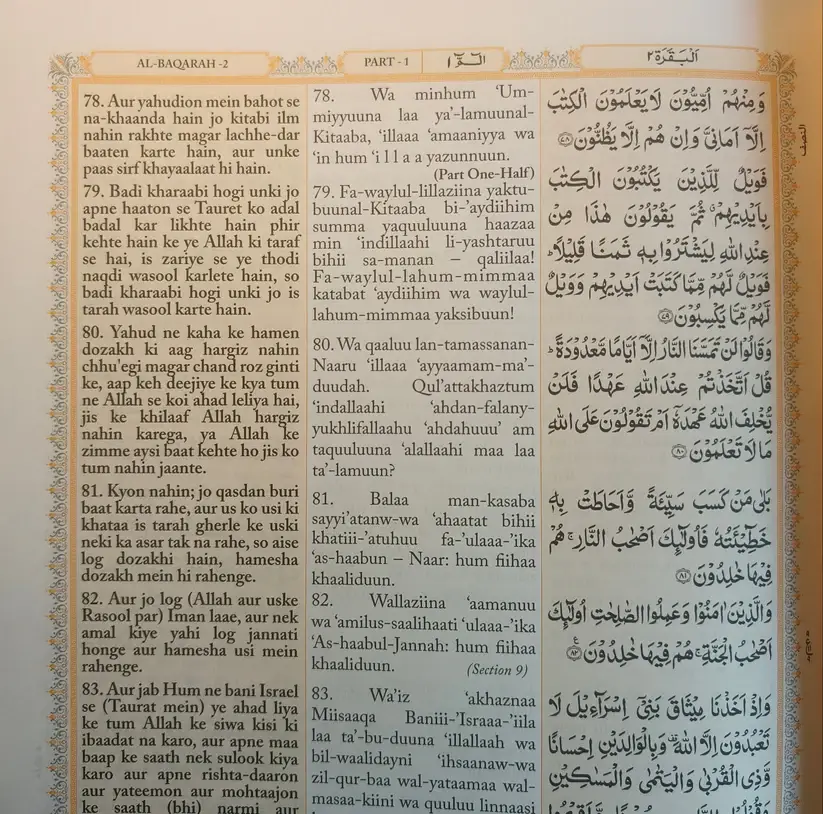 AL-BAQARAH -2
PART - 1
الٓمّٓ ١
اَلْبَقَرَة ٢
78. Aur yahudion mein bahot se
na-khaanda hain jo kitabi ilm
nahin rakhte magar lachhe-dar
baaten karte hain, aur unke
paas sirf khayaalaat hi hain.
79. Badi kharaabi hogi unki jo
apne haaton se Tauret ko adal
badal kar likhte hain phir
kehte hain ke ye Allah ki taraf
se hai, is zariye se ye thodi
naqdi wasool karlete hain, so
badi kharaabi hogi unki jo is
tarah wasool karte hain.
80. Yahud ne kaha ke hamen
dozakh ki aag hargiz nahin
chhu'egi magar chand roz ginti
ke, aap keh deejiye ke kya tum
ne Allah se koi ahad leliya hai,
jis ke khilaaf Allah hargiz
nahin karega, ya Allah ke
zimme aysi baat kehte ho jis ko
tum nahin jaante.
81. Kyon nahin; jo qasdan buri
baat karta rahe, aur us ko usi ki
khataa is tarah gherle ke uski
neki ka asar tak na rahe, so aise
log dozakhi hain, hamesha
dozakh mein hi rahenge.
82. Aur jo log (Allah aur uske
Rasool par) Iman laae, aur nek
amal kiye yahi log jannati
honge aur hamesha usi mein
rahenge.
83. Aur jab Hum ne bani Israel
se (Taurat mein) ye ahad liya
ke tum Allah ke siwa kisi ki
ibaadat na karo, aur apne maa
baap ke saath nek sulook kiya
karo aur apne rishta-daaron
aur yateemon aur mohtaajon
ke saath (bhi) narmi aur
78. Wa minhum 'Um-
miyyuuna laa ya'-lamuunal-
Kitaaba, 'illaaa 'amaaniyya wa
'in hum 'i l l a a yazunnuun.
(Part One-Half)
79. Fa-waylul-lillaziina yaktu-
buunal-Kitaaba bi-'aydiihim
summa yaquuluuna haazaa
min 'indillaahi li-yashtaruu
bihii sa-manan – qaliilaa!
Fa-waylul-lahum-mimmaa
katabat 'aydiihim wa waylul-
lahum-mimmaa yaksibuun!
80. Wa qaaluu lan-tamassanan-
Naaru 'illaaa 'ayyaamam-ma'-
duudah. Qul'attakhaztum
'indallaahi 'ahdan-falany-
yukhlifallaahu 'ahdahuuu' am
taquuluuna 'alallaahi maa laa
ta'-lamuun?
81. Balaa man-kasaba
sayyi'atanw-wa 'ahaatat bihii
khatiii-'atuhuu fa-'ulaaa-'ika
'as-haabun – Naar: hum fiihaa
khaaliduun.
82. Wallaziina 'aamanuu
wa 'amilus-saalihaati 'ulaaa-'ika
'As-haabul-Jannah: hum fiihaa
khaaliduun. (Section 9)
83. Wa'iz 'akhaznaa
Miisaaqa Baniii-'Israaa-'iila
laa ta'-bu-duuna 'illallaah wa
bil-waalidayni 'ihsaanaw-wa
zil-qur-baa wal-yataamaa wal-
masaa-kiini wa quuluu linnaasi
وَمِنْهُمْ اُمِّيُّوْنَ لَا يَعْلَمُوْنَ الْكِتٰبَ
اِلَّآ اَمَانِيَّ وَاِنْ هُمْ اِلَّا يَظُنُّوْنَ ۝٧٨
فَوَيْلٌ لِّلَّذِيْنَ يَكْتُبُوْنَ الْكِتٰبَ
بِاَيْدِيْهِمْ ۗ ثُمَّ يَقُوْلُوْنَ هٰذَا مِنْ
عِنْدِ اللّٰهِ لِيَشْتَرُوْا بِهٖ ثَمَنًا قَلِيْلًا ؕ
فَوَيْلٌ لَّهُمْ مِّمَّا كَتَبَتْ اَيْدِيْهِمْ وَوَيْلٌ
لَّهُمْ مِّمَّا يَكْسِبُوْنَ ۝٧٩
وَقَالُوْا لَنْ تَمَسَّنَا النَّارُ اِلَّآ اَيَّامًا مَّعْدُوْدَةً ؕ
قُلْ اَتَّخَذْتُمْ عِنْدَ اللّٰهِ عَهْدًا فَلَنْ
يُّخْلِفَ اللّٰهُ عَهْدَهٗٓ اَمْ تَقُوْلُوْنَ عَلَى اللّٰهِ
مَا لَا تَعْلَمُوْنَ ۝٨٠
بَلٰى مَنْ كَسَبَ سَيِّئَةً وَّاَحَاطَتْ بِهٖ
خَطِيْٓئَتُهٗ فَاُولٰٓئِكَ اَصْحٰبُ النَّارِ ۚ هُمْ
فِيْهَا خٰلِدُوْنَ ۝٨١
وَالَّذِيْنَ اٰمَنُوْا وَعَمِلُوا الصّٰلِحٰتِ اُولٰٓئِكَ
اَصْحٰبُ الْجَنَّةِ ۚ هُمْ فِيْهَا خٰلِدُوْنَ ۝٨٢
وَاِذْ اَخَذْنَا مِيْثَاقَ بَنِيْٓ اِسْرَآءِيْلَ لَا
تَعْبُدُوْنَ اِلَّا اللّٰهَ ۫ وَبِالْوَالِدَيْنِ اِحْسَانًا
وَّذِى الْقُرْبٰى وَالْيَتٰمٰى وَالْمَسٰكِيْنِ
النصف